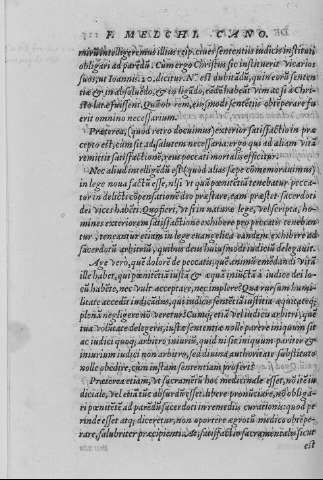 F. MELCHI. CANO.
mirũ intelligeremus illius reip. ciues sententiis iudicis instituti
obligari ad parẽdũ. Cùm ergo Christus sic instituerit vicarios
suos, ut Ioannis. 20. dicitur. Nõ est dubitãdũ, quin eorũ senten
tiæ & in absoluẽdo, & in ligãdo, eãdẽ habeãt vim ac si à Chri-
sto latæ fuissent. Quãob rem, eiusmodi sentẽtiis obtẽperare fu
erit omnino necessarium.
Præterea, (quod retro docuimus) exterior satisfactio in præ
cepto est, cùm sit ad salutem necessaria: ergo qui ad aliam vitã
remittit satisfactionẽ, reus peccati mortalis efficitur.
Nec aliud intelligẽdũ est (quod alias sæpe cõmemorauimus)
in lege noua factũ esse, nisi vt quã pœnitẽtiã tenebatur pecca-
tor in delicti recõpensationẽ deo præstare, eam præstet sacerdoti
dei vices habẽti. Quo fieri, vt si in naturæ lege, vel scripta, ho-
mines exteriorem satisfactionẽ exhibere pro peccatis tenebaǹ
tur, teneantur etiam in lege euangelica eandem exhibere ad
sacerdotũ arbitriũ, quibus deus huiusmodi iudiciũ delegauit.
Age verò, què dolorẽ de peccatis, què animũ emẽdandi vitã
ille habet, qui pœnitẽtiã iustã & æquã iniũctã à iudice dei lo-
cũ habẽte, nec vult acceptare, nec implere? Qua rursum humi
litate accedit iudicãdus, qui iudicis sentẽtiã iustitiæ æquitateq;
plenã negligere nõ veretur? Cumq; etiã vel iudicis arbitri, què
tua volũtate delegeris, iustæ sententiæ nolle parère iniquum sit
ac iudici quoq; arbitro iniuriũ, quid ni sit iniquum pariter &
iniurium iudici non arbitro, sed diuina authoritate substituto
nolle obedire, cùm iustam sententiam profert?
Præterea etiam, vt sacramẽtũ hoc medicinale esset, nõ itẽ iu
diciale, vel etiã tũc absurdũ esset libere pronũciare, nõ obliga-
ri pœnitẽtẽ ad parẽdũ sacerdoti in remediis curationis: quod pe
rinde esset atq; diceretur, non oportere ægrotũ medico obtẽpe-
rare, salubriter præcipienti. & satisfactio sacramentalis sicut
est